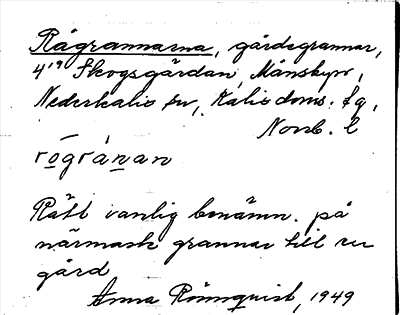 Rågrannarna, gårdsgrannar,
4¹⁹ Skogsgårdan, Månsbyn,
Nederkalix sn, Kalix doms. fg,
Norrb. l
rōgránan
Rätt vanlig benämn. på
närmaste grannar till en
gård
Anna Rönnquist, 1949